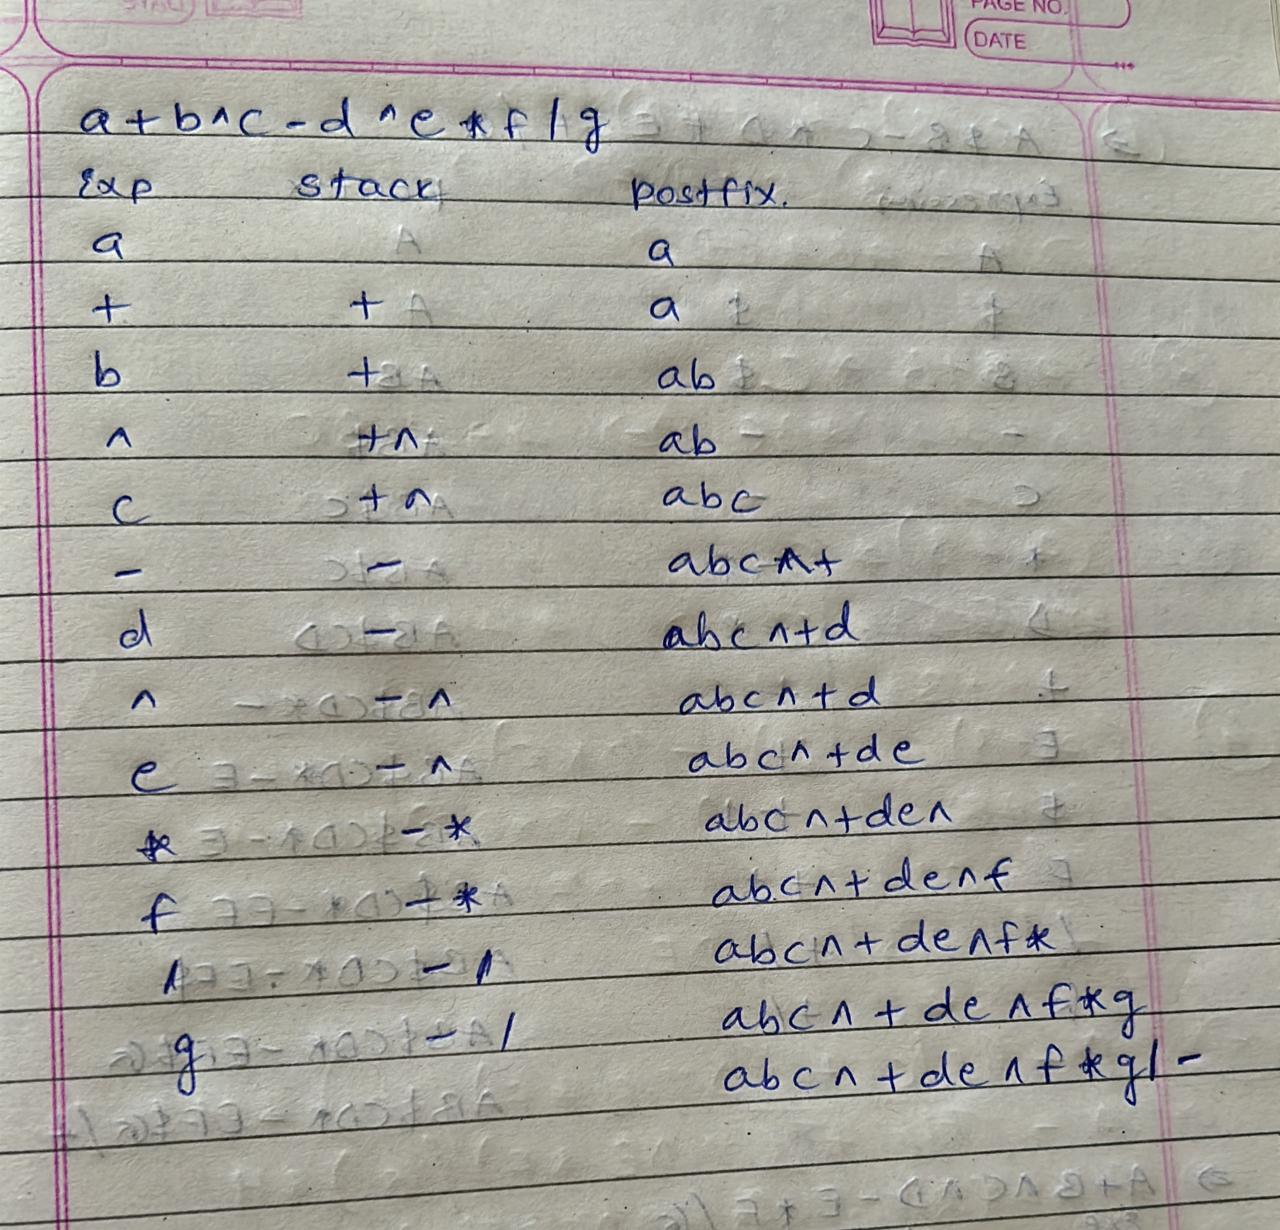 PAGE NO.
DATE
a+b^c-d^e*f/g
Exp stack postfix.
a a
+ + a
b + ab
^ +^ ab
c +^ abc
- - abc^+
d - abc^+d
^ -^ abc^+d
e -^ abc^+de
* -* abc^+de^
f -* abc^+de^f
/ -/ abc^+de^f*
g -/ abc^+de^f*g
abc^+de^f*g/-